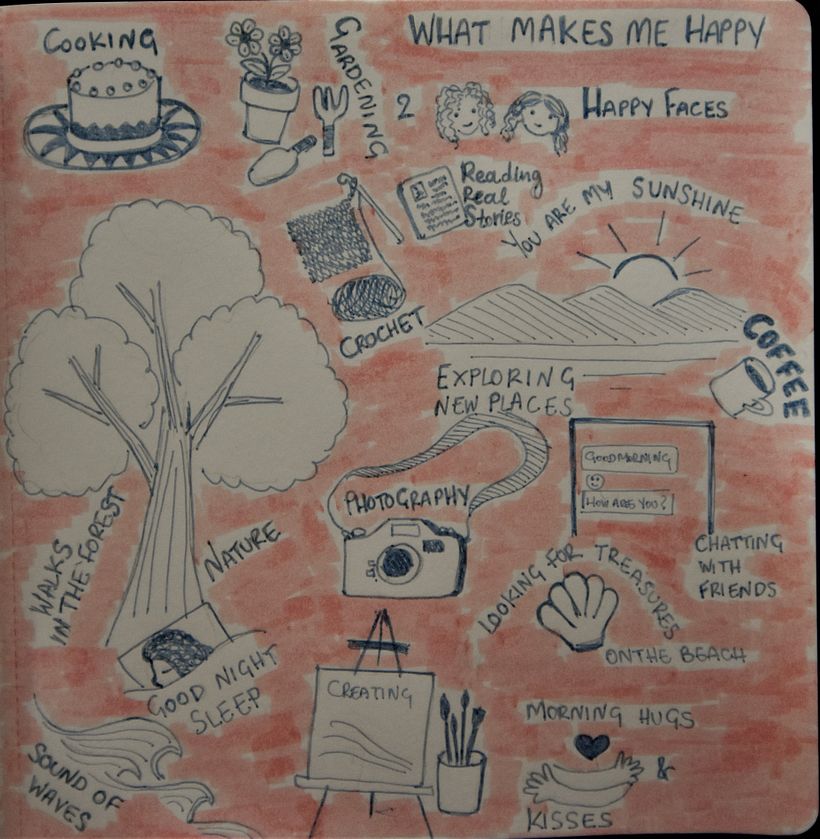 WHAT MAKES ME HAPPY
COOKING
GARDENING
2
HAPPY FACES
Reading
Real
Stories
YOU ARE MY SUNSHINE
CROCHET
COFFEE
EXPLORING
NEW PLACES
PHOTOGRAPHY
GOODMORNING
HOW ARE YOU?
CHATTING
WITH
FRIENDS
WALKS
IN THE FOREST
NATURE
LOOKING FOR TREASURES
ON THE BEACH
GOOD NIGHT
SLEEP
CREATING
MORNING HUGS
&
KISSES
SOUND OF
WAVES